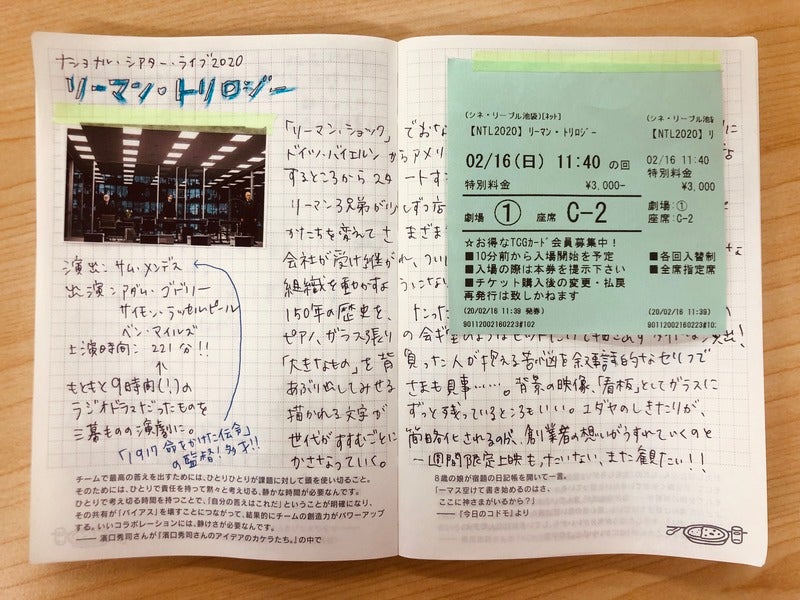 ナショナル・シアター・ライブ2020
リーマン・トリロジー
演出:サム・メンデス
出演:アダム・ゴドリー
サイモン・ラッセル・ビール
ベン・マイルズ
上演時間:221分!!
↑
もともと9時間(!)の
ラジオドラマだったものを
三幕ものの演劇に。
「1917 命をかけた伝令」
の監督!多才!!
「リーマン・ショック」
ドイツ・バイエルン
するところからスタ
リーマン3兄弟が少
かたちを変えてさ
会社が受け継が
組織を動かすよ
150年の歴史を、
ピアノ、ガラス張り
「大きなもの」を背
あぶり出してみせる
描かれる文字が
世代がすすむごとに
かさなっていく。
チームで最高の答えを出すためには、ひとりひとりが課題に対して頭を使い切ること。
そのためには、ひとりで責任を持って黙々と考え切る、静かな時間が必要なんです。
ひとりで考え切る時間を持つことで、「自分の答えはこれだ」ということが明確になり、
その共有が「バイアス」を壊すことにつながって、結果的にチームの創造力がパワーアップ
する。いいコラボレーションには、静けさが必要なんです。
―― 濱口秀司さんが『濱口秀司さんのアイデアのカケラたち。』の中で
でおな
からアメリ
ートす
しずつ店
まざま
れ、つい
うになり
たった
の会ギ
負った人が抱える苦悩を叙事詩的なセリフで
さまも見事……。背景の映像、「看板」としてガラスに
ずっと残っているところもいい。ユダヤのしきたりが、
簡略化されるのが、創業者の想いがうすれていくのと
一週間限定上映もったいない、また観たい!!
(シネ・リーブル池袋)[ネット]
【NTL2020】リーマン・トリロジー
02/16(日) 11:40 の回
特別料金 ¥3,000-
劇場 ① 座席 C-2
☆お得なTCGカード会員募集中!
■10分前から入場開始を予定
■入場の際は本券を提示下さい
■チケット購入後の変更・払戻
再発行は致しかねます
(20/02/16 11:39 発券)
90112002160223#102
(シネ・リーブル池袋
【NTL2020】リ
02/16 11:40
特別料金
¥3,000
劇場:①
座席:C-2
■各回入替制
■全席指定席
(20/02/16 11:39)
90112002160223#10
8歳の娘が宿題の日記帳を開いて一言。
「一マス空けて書き始めるのはさ、
ここに神さまがいるから?」
―― 『今日のコドモ』より